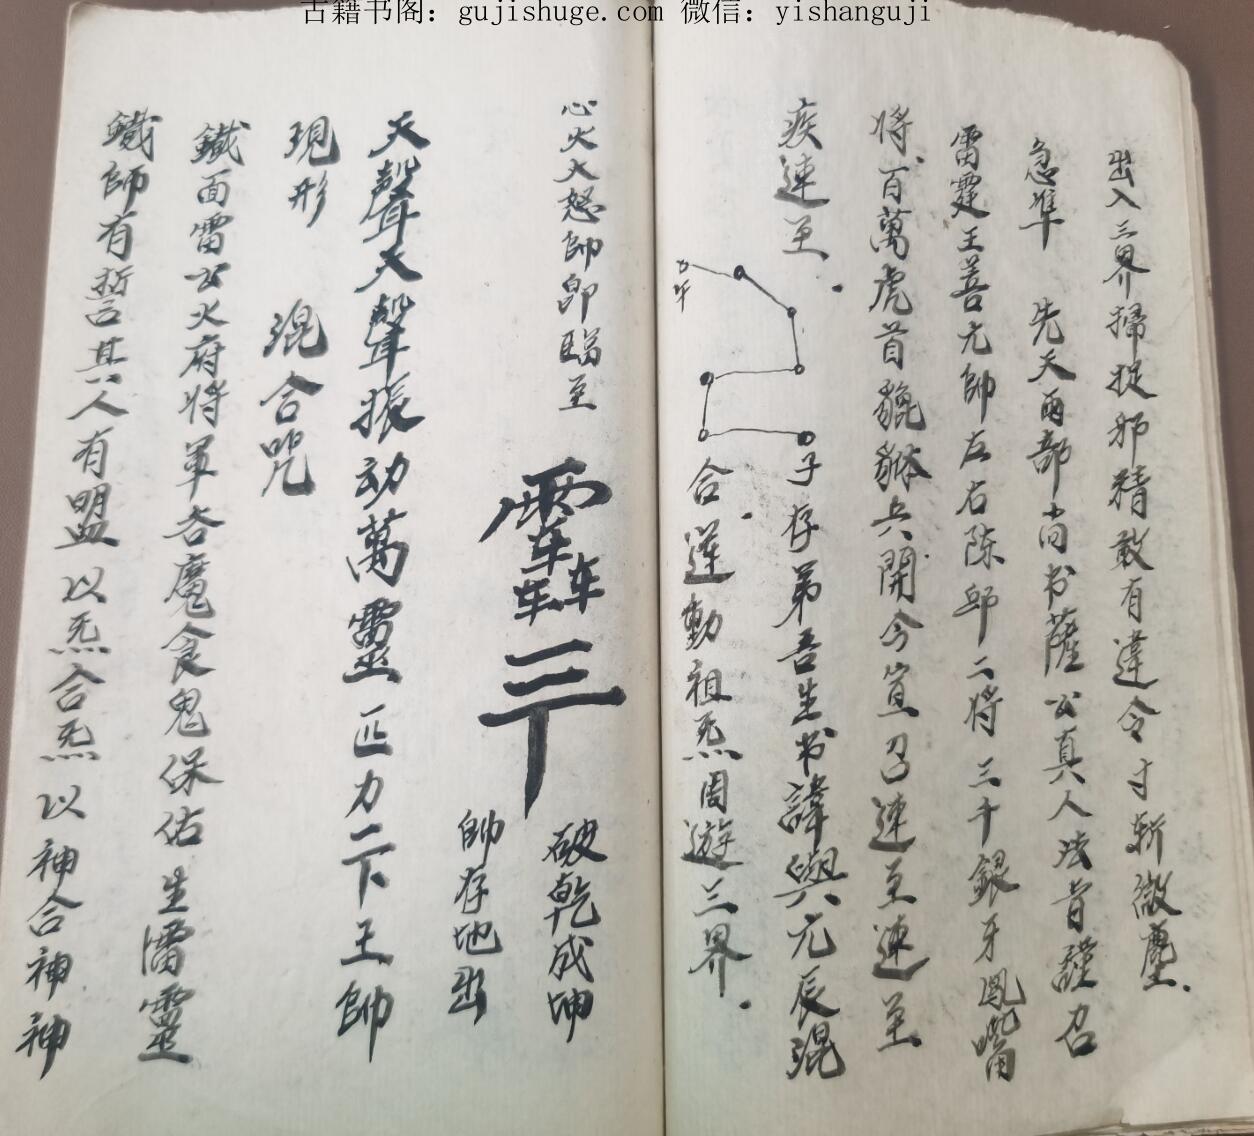 古籍书阁：gujishuge.com 微信：yishanguji
出入三界掃捉邪精敢有違令寸斬微塵
急準　先天雨部尚书薩公真人法旨謹召
雷霆王善元帥左右陈邱二将三千銀牙鳳嘴
将百萬虎首貔貅兵開今宣召速至速至
疾速至
子存弟吾生书諱與元辰混
合運動祖炁周遊三界
心火大怒帥即臨至
破乾成坤
帥存地出
天聲天聲振动萬靈匹力一下王帥
現形　混合咒
鐵面雷公火府将军吞魔食鬼保佑生靈
鐵師有誓其人有盟以炁合炁以神合神神